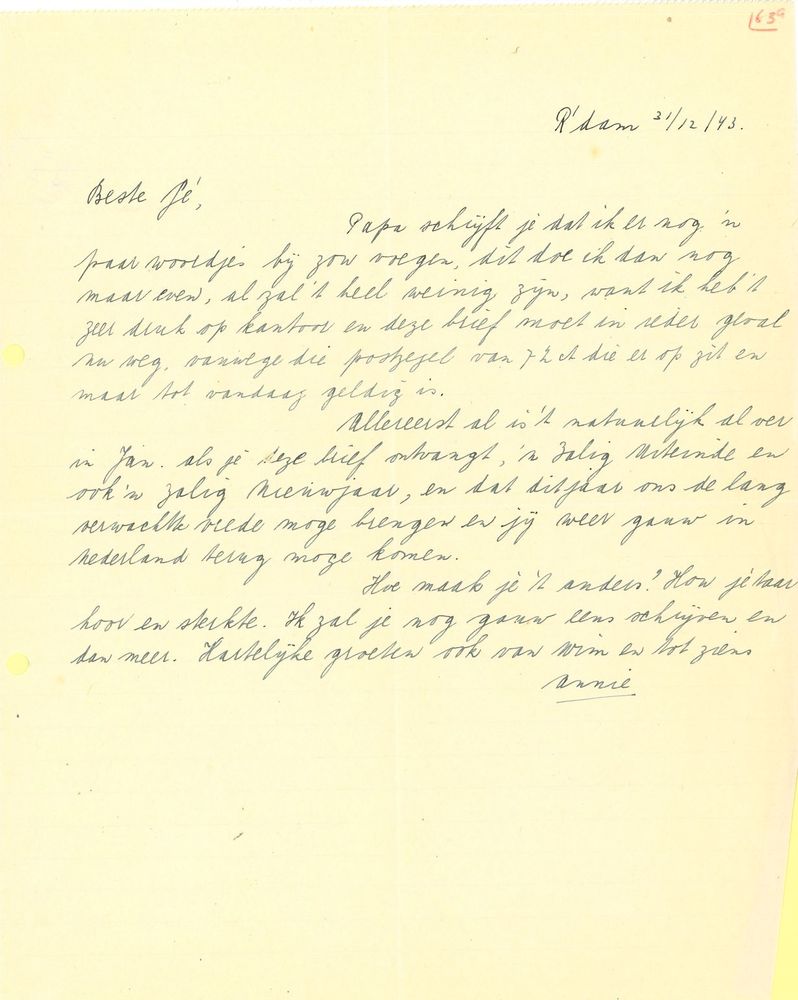 63a
R'dam 31/12/43.
Beste Jé,
Papa schrijft je dat ik er nog 'n
paar woordjes bij zou voegen, dit doe ik dan nog
maar even, al zal 't heel weinig zijn, want ik heb 't
zeer druk op kantoor en deze brief moet in ieder geval
nu weg, vanwege die postzegel van 7½ ct die er op zit en
maar tot vandaag geldig is.
Allereerst al is 't natuurlijk al ver
in Jan. als je deze brief ontvangt, 'n Zalig Uiteinde en
ook 'n zalig Nieuwjaar, en dat dit jaar ons de lang
verwachte vrede moge brengen en jij weer gauw in
Nederland terug moge komen.
Hoe maak je 't anders? Hou je taai
hoor en sterkte. Ik zal je nog gauw eens schrijven en
dan meer. Hartelijke groeten ook van Wim en tot ziens
Annie